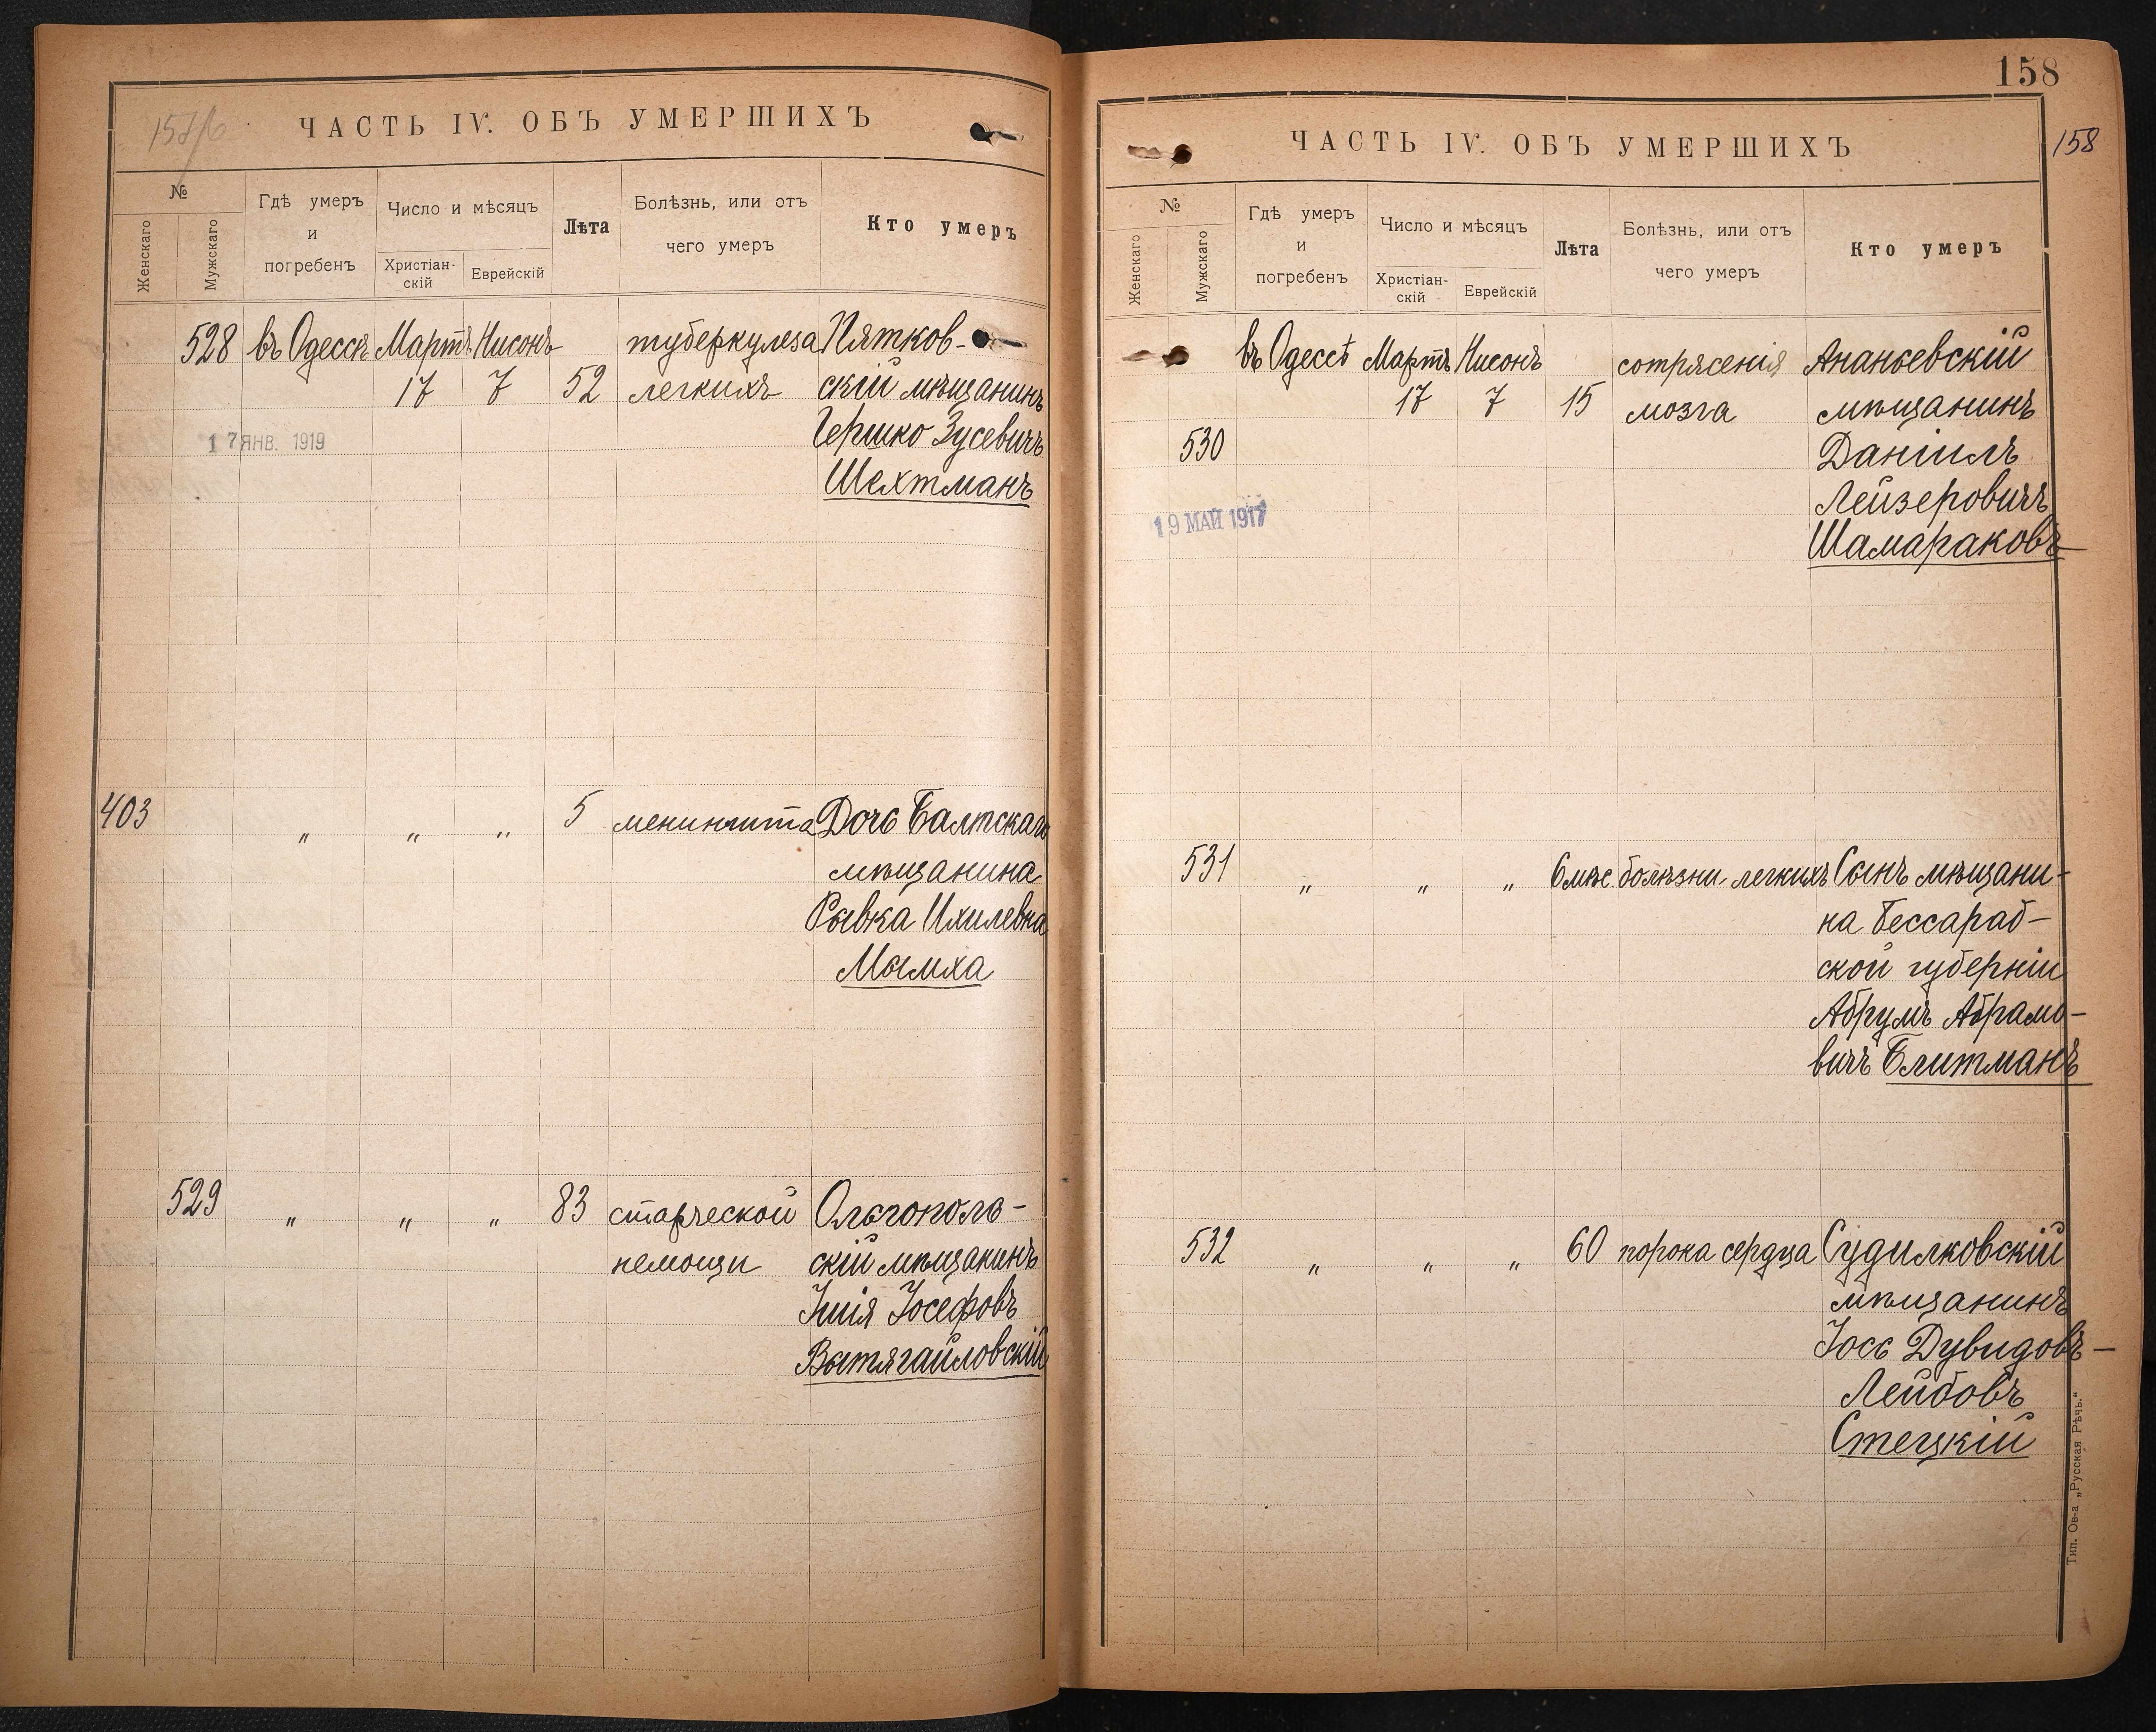 ЧАСТЬ IV. ОБЪ УМЕРШИХЪ
№
Женскаго
Мужскаго
Гдѣ умеръ
и
погребенъ
Число и мѣсяцъ
Христіан-
скій
Еврейскій
Лѣта
Болѣзнь, или отъ
чего умеръ
Кто умеръ
528 въ Одессѣ Мартъ Нисонъ туберкулеза Пятков-
17 7 52 легкихъ скій мѣщанинъ
Гершко Зусевичъ
17 ЯНВ. 1919
Шехтманъ
403 " " " 5 менингита Дочь Балтскаго
мѣщанина
Рывка Ихилевна
Мымха
529 " " " 83 старческой Ольгополь-
немощи скій мѣщанинъ
Іосефовъ
Вытягайловскій
158
ЧАСТЬ IV. ОБЪ УМЕРШИХЪ
158
№
Женскаго
Мужскаго
Гдѣ умеръ
и
погребенъ
Число и мѣсяцъ
Христіан-
скій
Еврейскій
Лѣта
Болѣзнь, или отъ
чего умеръ
Кто умеръ
въ Одессѣ Мартъ Нисонъ сотрясенія Ананьевскій
17 7 15 мозга мѣщанинъ
530 Даніилъ
Лейзеровичъ
19 МАЙ 1917
Шамараковъ
531 " " " 6 мѣс. болѣзни легкихъ Сынъ мѣщани-
на Бессараб-
ской губерніи
Абрумъ Абрамо-
вичъ Блитманъ
532 " " " 60 порока сердца Судилковскій
мѣщанинъ
Іось Дувидовъ-
Лейбовъ
Стецкій
Тип. Ов-а „Русская Рѣчь."